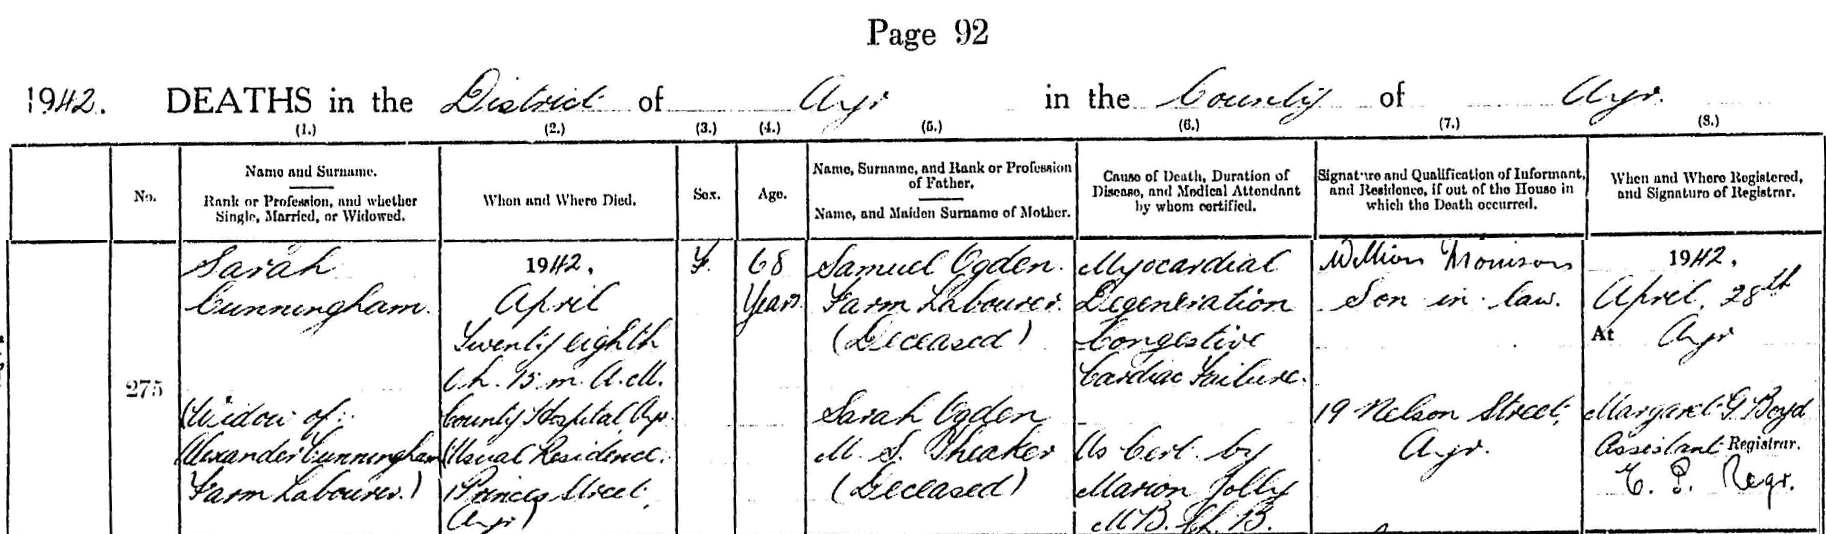 Page 92
1942. DEATHS in the District of Ayr in the County of Ayr.
(1.) (2.) (3.) (4.) (5.) (6.) (7.) (8.)
No.
Name and Surname.
Rank or Profession, and whether
Single, Married, or Widowed.
When and Where Died.
Sex.
Age.
Name, Surname, and Rank or Profession
of Father.
Name, and Maiden Surname of Mother.
Cause of Death, Duration of
Disease, and Medical Attendant
by whom certified.
Signature and Qualification of Informant,
and Residence, if out of the House in
which the Death occurred.
When and Where Registered,
and Signature of Registrar.
275
Sarah
Cunningham.
(Widow of
Alexander Cunningham
Farm Labourer.)
1942.
April
Twenty eighth
h. 15 m. A.M.
County Hospital Ayr.
(Usual Residence.
Princes Street,
Ayr)
F.
68
Years
Samuel Ogden.
Farm Labourer.
(Deceased)
Sarah Ogden
M. S. Theaker
(Deceased)
Myocardial
Degeneration
Congestive
Cardiac Failure.
As Cert. by
Marion Jolly
M.B. Ch. B.
William Morrison
Son in law.
19 Nelson Street,
Ayr.
1942.
April, 28th
At Ayr
Margaret G. Boyd
Assistant Registrar.
Regr.